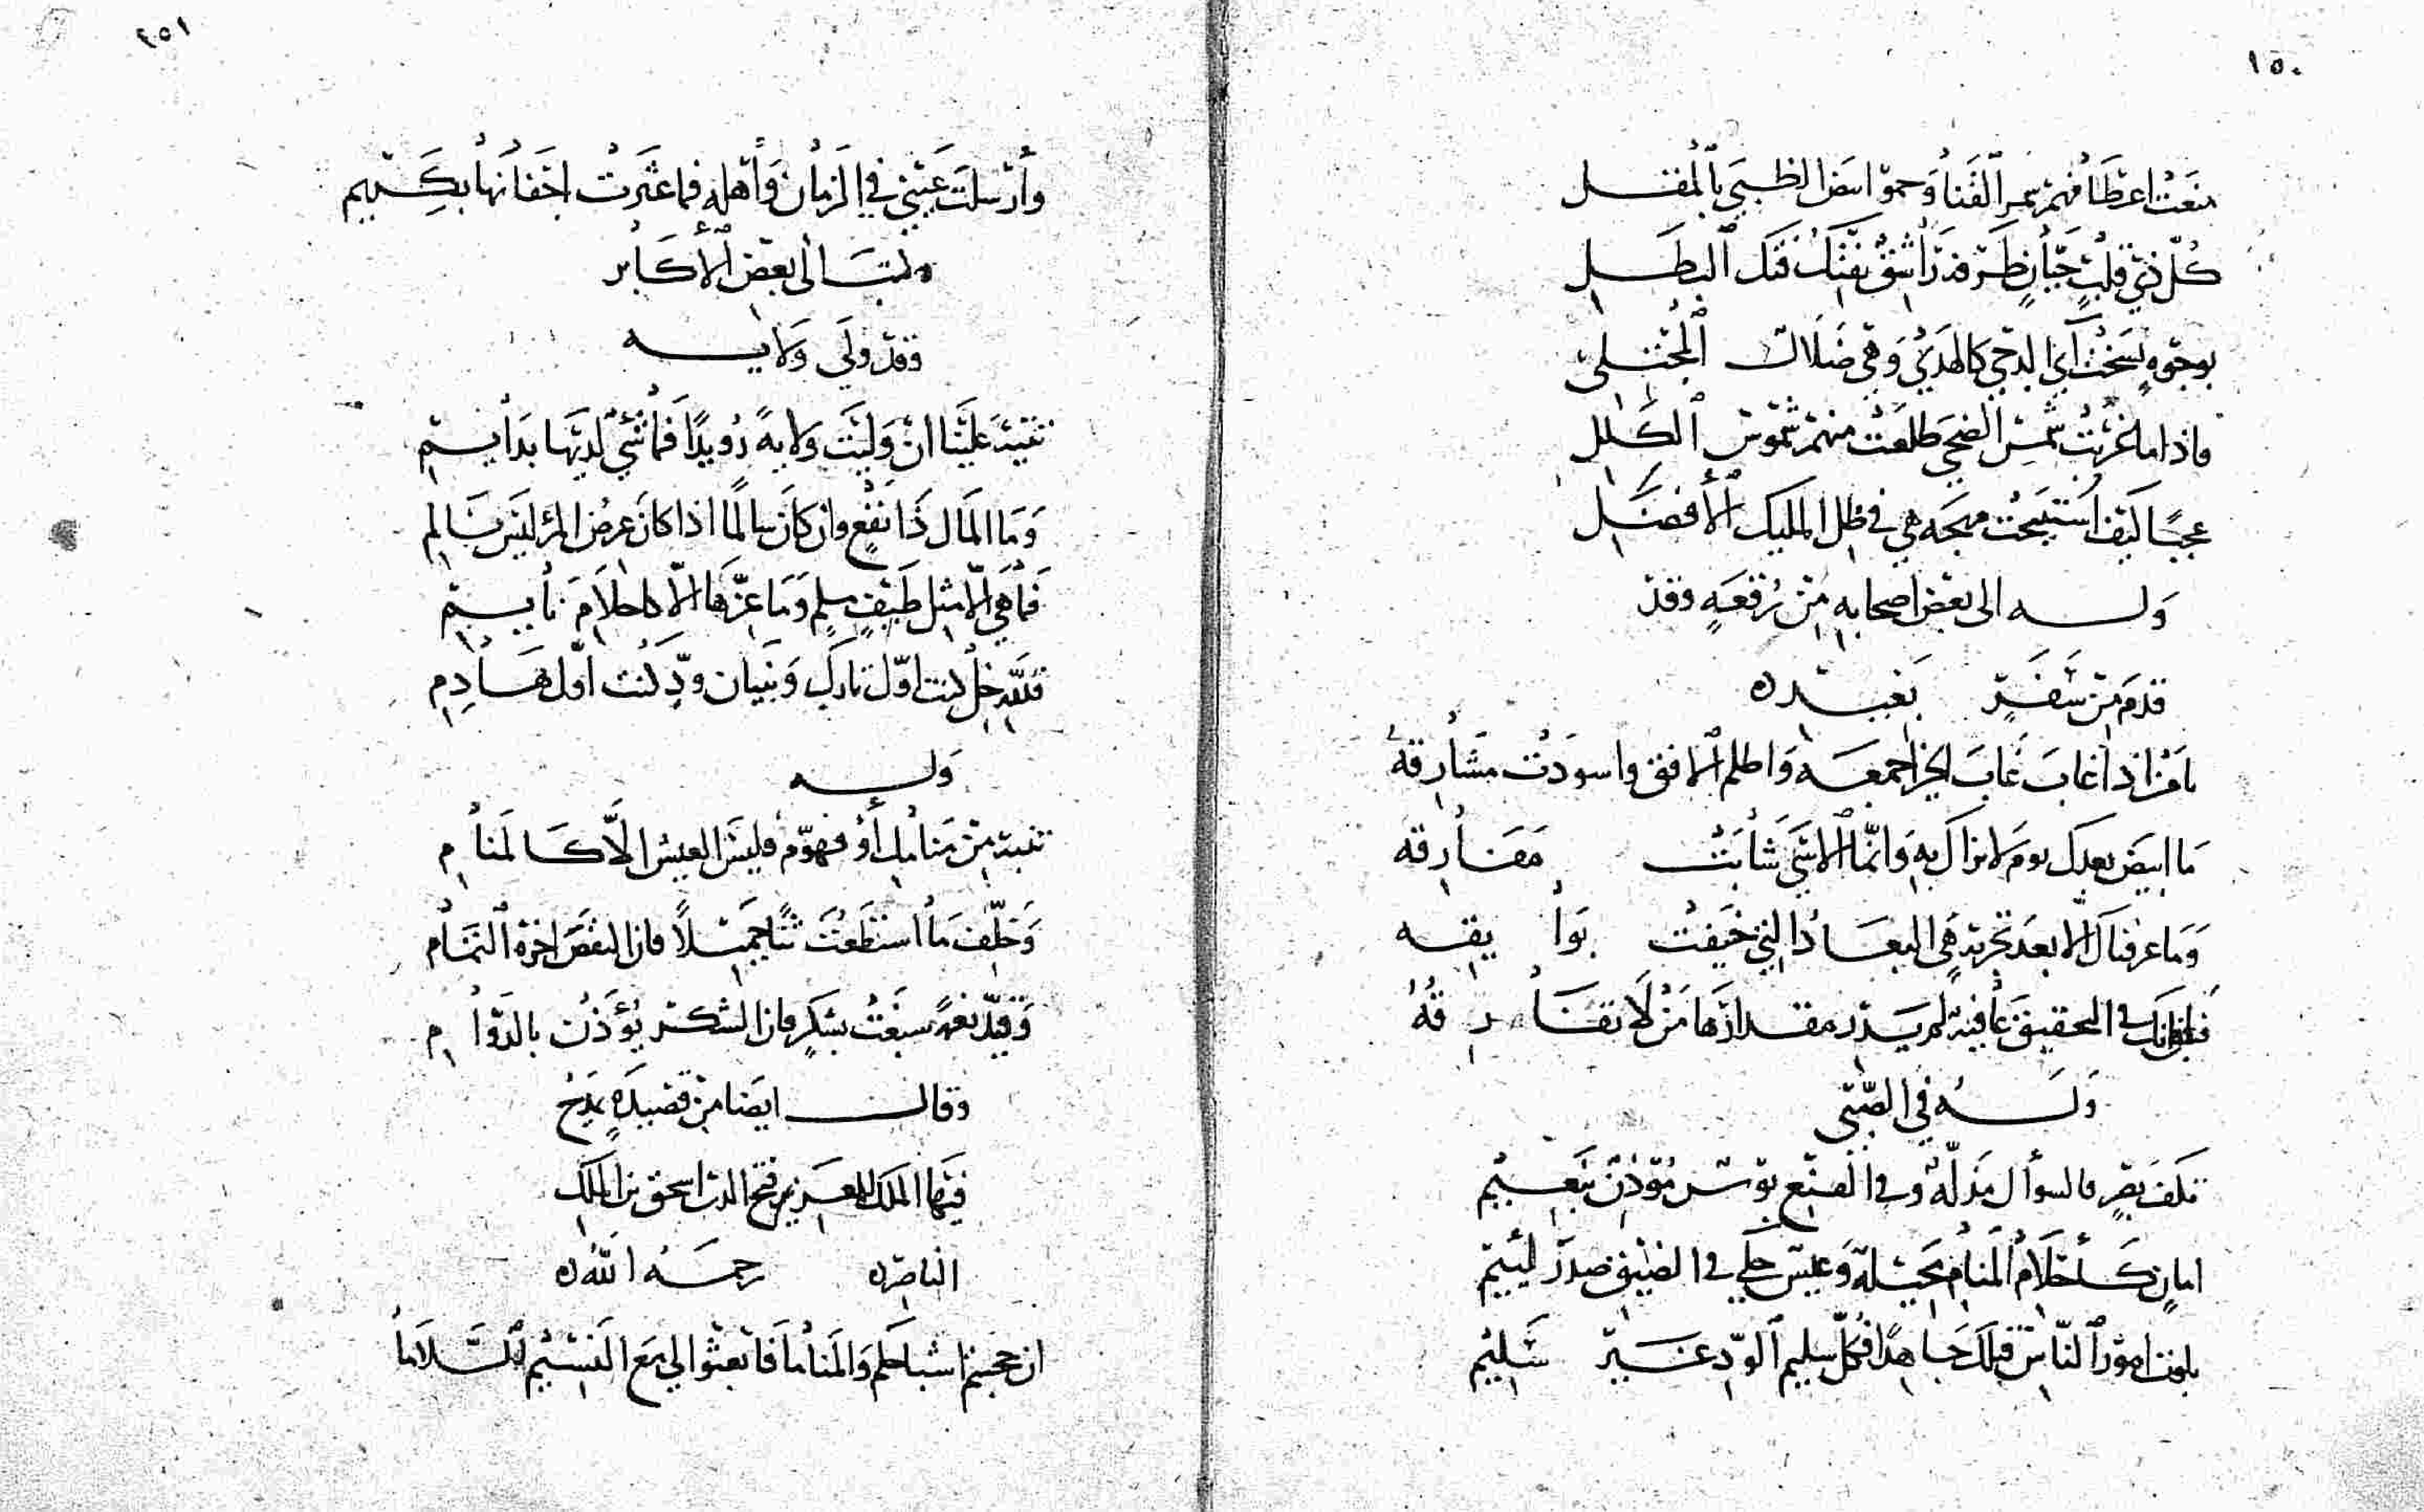 ١٥٠
منعت اعطافهم سمر القنا وحموا بيض الظبى بالمقل
كل ذي قلب جبان طرفه راشق يفتك فتك البطل
بوجوه نسخت آي الدجى كالهدى وهي ضلال المجتلى
فاذا ما غربت شمس الضحى طلعت منهم شموس الكلل
عجبًا كيف استبيحت مهجة هي في ظل المليك الأفضل
وله الى بعض اصحابه من رقعةٍ وقد
قدم من سفرٍ بعيد
يا من اذا غاب غاب الخير اجمعه واظلم الافق واسودت مشارقه
ما ابيض بعدك يوم لا نراك به وانما للاسى شابت مفارقه
وما عرفناك الا بعد تجربة هي البعاد التي خيفت بوايقه
فانك في التحقيق عافية لم يدر مقدارها من لا تفارقه
وله في الصبى
تكلف بصبر فالسؤال مذلة وفي المنع بوس مؤذن بنعيم
امانٍ كأحلام المنام بخيلة وعيش حكى في الضيق صدر لئيم
بلوت امور الناس قبلك جاهدًا فكل سليم الود غير سليم
٢٥١
وأرسلت عيني في الزمان وأهله فما عثرت اجفانها بكريم
وكتب الى بعض الأكابر
وقد ولي ولايه
تتيه علينا ان وليت ولايةً رويدًا فما شيء لديها بدايم
وما المال ذا نفع وان كان سالمًا اذا كان عرض المرء ليس بسالم
فما هي الا مثل طيف ملم وما عزها الا كاحلام نايم
فلله خل كنت اول تارك وبنيان ود كنت اول هادم
وله
تنبه من منامك أو فهوم فليس العيش الا كالمنام
وخلف ما استطعت ثنا جميلاً فان النقص اخرة التمام
وقيد نعمة سبغت بشكر فان الشكر يؤذن بالدوام
وقال ايضا من قصيدةٍ يمدح
فيها الملك العزيز فتح الدين اسحق بن الملك
الناصر رحمه الله
ان حجبتم اشباحكم والمناما فابعثوا لي مع النسيم السلاما